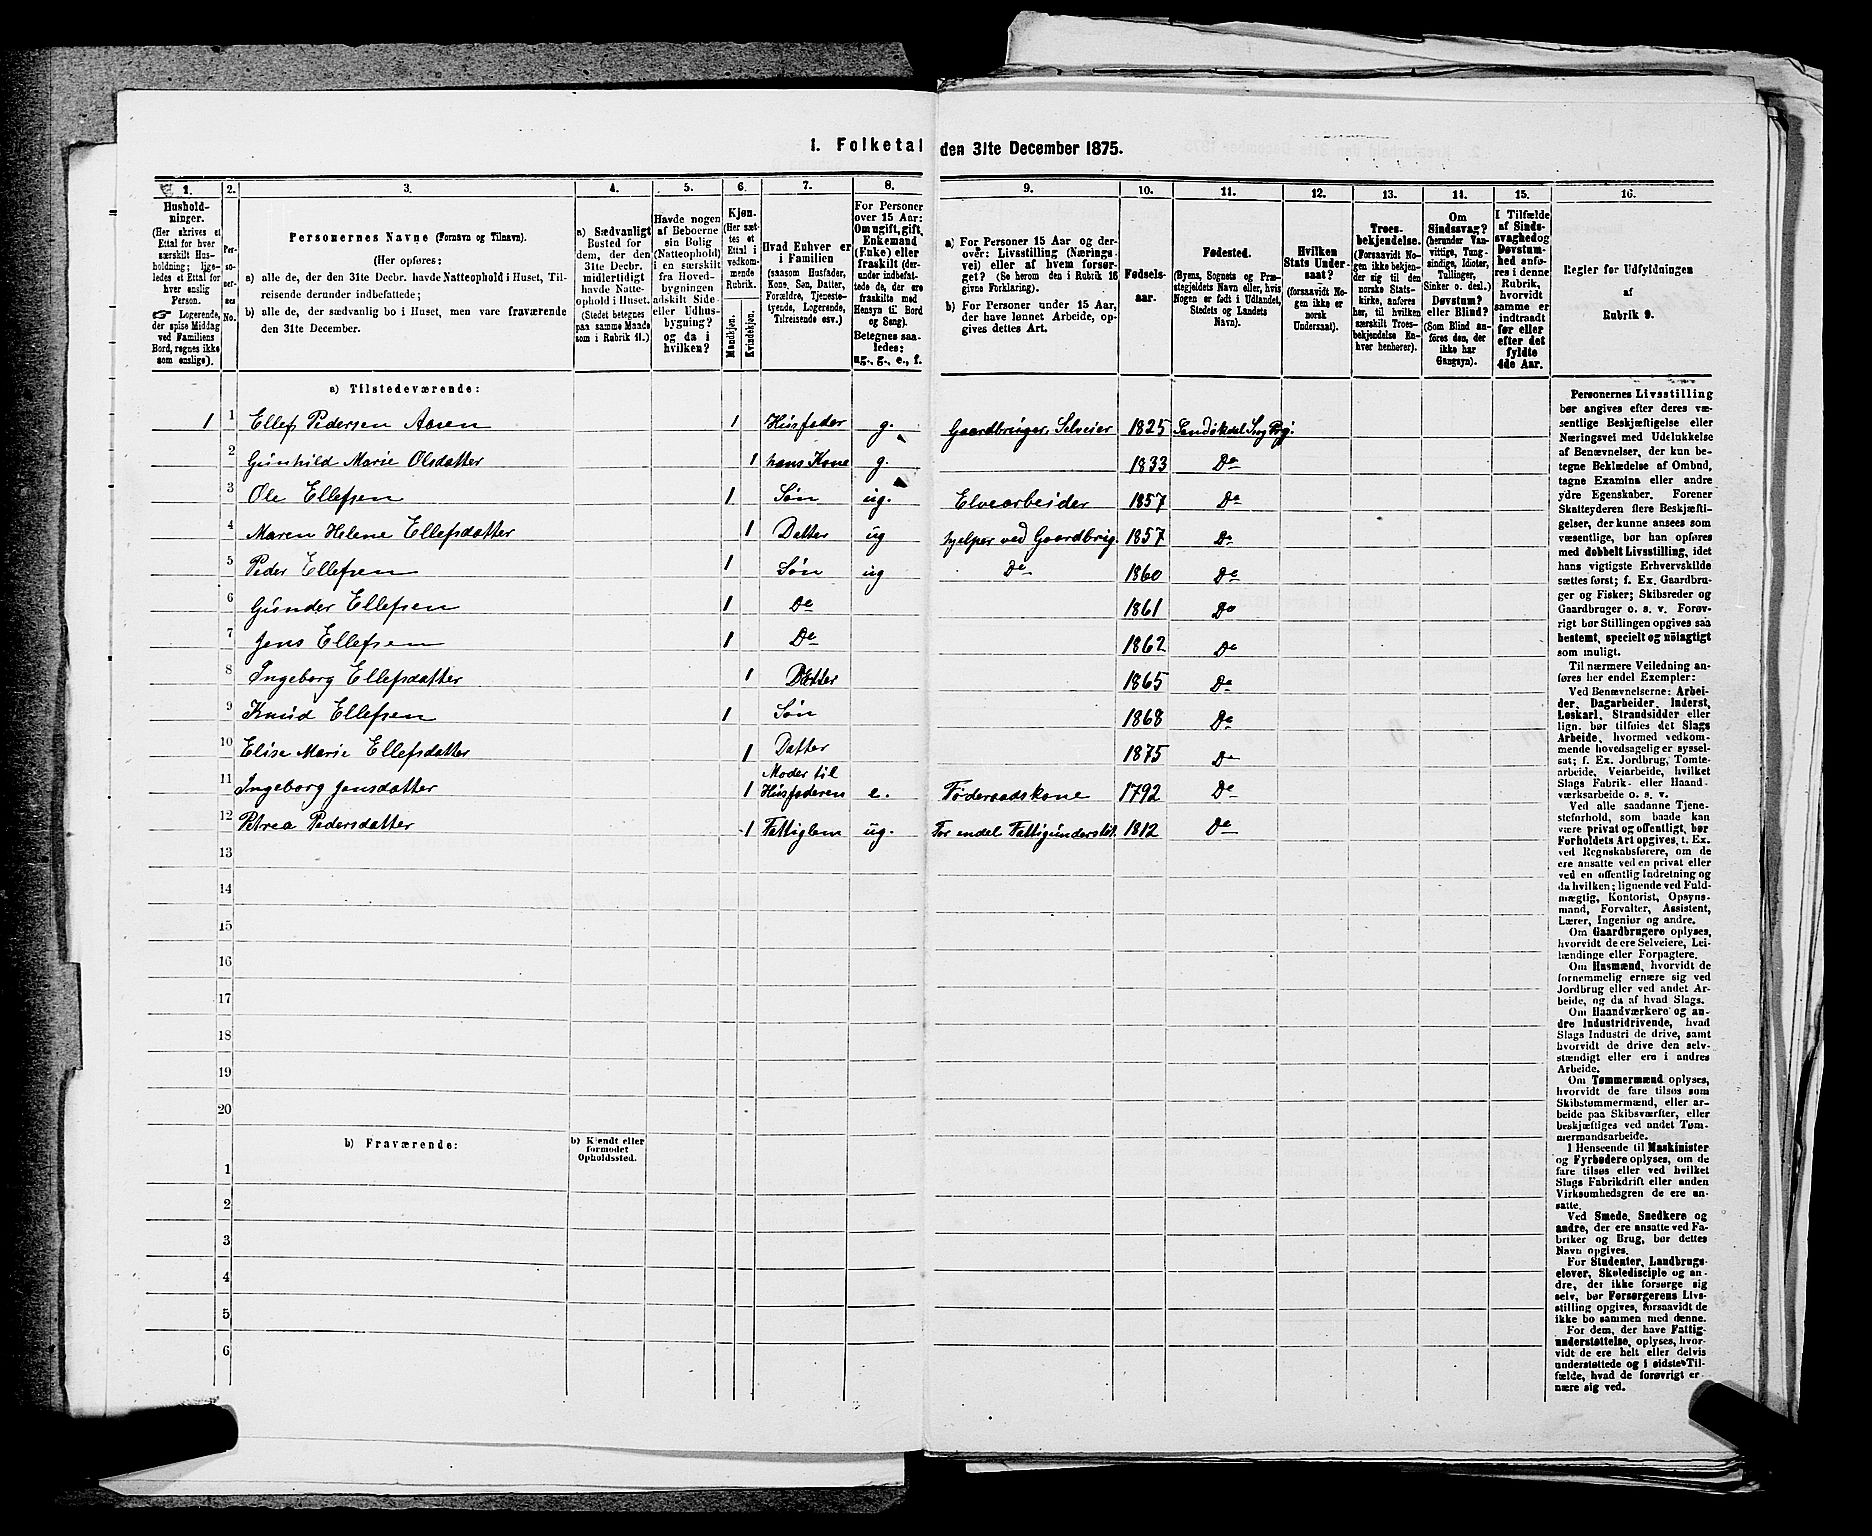 1. Folketal den 31te December 1875.
1. 2. 3. 4. 5. 6. 7. 8. 9. 10. 11. 12. 13. 14. 15. 16.
Hushold-
ninger.
(Her skrives et
Ettal for hver
særskilt Hus-
holdning; lige-
ledes et Ettal for
hver enslig
Person.
☞ Logerende,
der spise Middag
ved Familiens
Bord, regnes ikke
som enslige).
Per-
so-
ner-
nes
No.
Personernes Navne (Fornavn og Tilnavn).
(Her opføres:
a) alle de, der den 31te Decbr. havde Natteophold i Huset, Til-
reisende derunder indbefattede;
b) alle de, der sædvanlig bo i Huset, men vare fraværende
den 31te December.
a) Sædvanligt
Bosted for
dem, der den
31te Decbr.
midlertidigt
havde Natte-
ophold i Huset.
(Stedet betegnes
paa samme Maade
som i Rubrik 11.)
Havde nogen
af Beboerne
sin Bolig
(Natteophold)
i en særskilt
fra Hoved-
bygningen
adskilt Side-
eller Udhus-
bygning?
og da i
hvilken?
Kjøn.
(Her sæt-
tes et
Ettal i
vedkom-
mende
Rubrik.
Mandkjøn.
Kvindekjøn.
Hvad Enhver er
i Familien
(saasom Husfader,
Kone, Søn, Datter,
Forældre, Tjeneste-
tyende, Logerende,
Tilreisende osv.)
For Personer
over 15 Aar:
Om ugift, gift,
Enkemand
(Enke) eller
fraskilt (der-
under indbefat-
tede de, der ere
fraskilte med
Hensyn til Bord
og Seng).
Betegnes saa-
ledes:
ug., g., e., f.
a) For Personer 15 Aar og der-
over: Livsstilling (Nærings-
vei) eller af hvem forsør-
get? (Se herom den i Rubrik 16
givne Forklaring).
b) For Personer under 15 Aar,
der have lønnet Arbeide, op-
gives dettes Art.
Fødsels-
aar.
Fødested.
(Byens, Sognets og Præ-
stegjeldets Navn eller, hvis
Nogen er født i Udlandet,
Stedets og Landets
Navn).
Hvilken
Stats Under-
saat?
(forsaavidt No-
gen ikke er
norsk
Undersaat).
Troes-
bekjendelse.
(Forsaavidt No-
gen ikke bekjen-
der sig til den
norske Stats-
kirke, anføres
her, til hvilken
særskilt Troes-
bekjendelse En-
hver henhører).
Om
Sindssvag?
(herunder Van-
vittige, Tung-
sindige, Idioter,
Tullinger,
Sinker o. desl.)
Døvstum?
eller Blind?
(Som Blind an-
føres den, der
ikke har
Gangsyn).
I Tilfælde
af Sinds-
svaghed og
Døvstum-
hed anfø-
res i denne
Rubrik,
hvorvidt
samme er
indtraadt
før eller
efter det
fyldte
4de Aar.
Regler for Udfyldningen
af
Rubrik 9.
a) Tilstedeværende:
1 1 Ellef Pedersen Aasen 1 Husfader g. Gaardbruger, Selveier 1825 Sandøkdal Sog Prgj.
2 Gunhild Marie Olsdatter 1 hans Kone g. 1833 Do
3 Ole Ellefsen 1 Søn ug. Elvearbeider 1857 Do
4 Maren Helene Ellefsdatter 1 Datter ug hjelper ved Gaardbrug. 1857 Do
5 Peder Ellefsen 1 Søn ug Do 1860 Do
6 Gunder Ellefsen 1 Do 1861 Do
7 Jens Ellefsen 1 Do 1862 Do
8 Ingeborg Ellefsdatter 1 Datter 1865 Do
9 Knud Ellefsen 1 Søn 1868 Do
10 Elise Marie Ellefsdatter 1 Datter 1875 Do
11 Ingeborg Jensdatter 1 Moder til Husfaderen e. Føderaadskone 1792 Do
12 Petrea Pedersdatter 1 Fattiglem ug. For endel Fattigunderstøt. 1812 Do
13
14
15
16
17
18
19
20
b) Fraværende:
b) Kjendt eller
formodet
Opholdssted.
1
2
3
4
5
6
Personernes Livsstilling
bør angives efter deres væ-
sentlige Beskjæftigelse eller
Næringsvei med Udelukkelse
af Benævnelser, der kun be-
tegne Beklædelse af Ombud,
tagne Examina eller andre
ydre Egenskaber. Forener
Skatteyderen flere Beskjæfti-
gelser, der kunne ansees som
væsentlige, bør han opføres
med dobbelt Livsstilling, idet
hans vigtigste Erhvervskilde
sættes først; f. Ex. Gaardbru-
ger og Fisker; Skibsreder og
Gaardbruger o. s. v. Forøv-
rigt bør Stillingen opgives saa
bestemt, specielt og nöiagtigt
som muligt.
Til nærmere Veiledning an-
føres her endel Exempler:
Ved Benævnelserne: Arbei-
der, Dagarbeider, Inderst,
Løskarl, Strandsidder eller
lign. bør tilføies det Slags
Arbeide, hvormed vedkom-
mende hovedsagelig er syssel-
sat; f. Ex. Jordbrug, Tomte-
arbeide, Veiarbeide, hvilket
Slags Fabrik- eller Haand-
værksarbeide o. s. v.
Ved alle saadanne Tjene-
steforhold, som baade kan
være privat og offentligt, bør
Forholdets Art opgives, t. Ex.
ved Regnskabsførere, om de
ere ansatte ved en privat eller
ved en offentlig Indretning og
da hvilken; lignende ved Fuld-
mægtig, Kontorist, Opsyns-
mand, Forvalter, Assistent,
Lærer, Ingeniør og andre.
Om Gaardbrugere oplyses,
hvorvidt de ere Selveiere, Lei-
lændinge eller Forpagtere.
Om Husmænd, hvorvidt de
fornemmelig ernære sig ved
Jordbrug eller ved andet Ar-
beide, og da af hvad Slags.
Om Haandværkere og an-
dre Industridrivende, hvad
Slags Industri de drive, samt
hvorvidt de drive den selv-
stændigt eller ere i andres
Arbeide.
Om Tømmermænd oplyses,
hvorvidt de fare tilsøs som
Skibstømmermænd, eller ar-
beide paa Skibsværfter, eller
beskjæftiges ved andet Tøm-
mermandsarbeide.
I Henseende til Maskinister
og Fyrbødere oplyses, om de
fare tilsøs eller ved hvilket
Slags Fabrikdrift eller anden
Virksomhedsgren de ere an-
satte.
Ved Smede, Snedkere og
andre, der ere ansatte ved Fa-
briker og Brug, bør dettes
Navn opgives.
For Studenter, Landbrugs-
elever, Skoledisciple og an-
dre, der ikke forsørge sig
selv, bør Forsørgerens Livs-
stilling opgives, forsaavidt de
ikke bo sammen med denne.
For dem, der have Fattig-
understøttelse, oplyses, hvor-
vidt de ere helt eller delvis
understøttede og i sidste Til-
fælde, hvad de forøvrigt er-
nære sig ved.